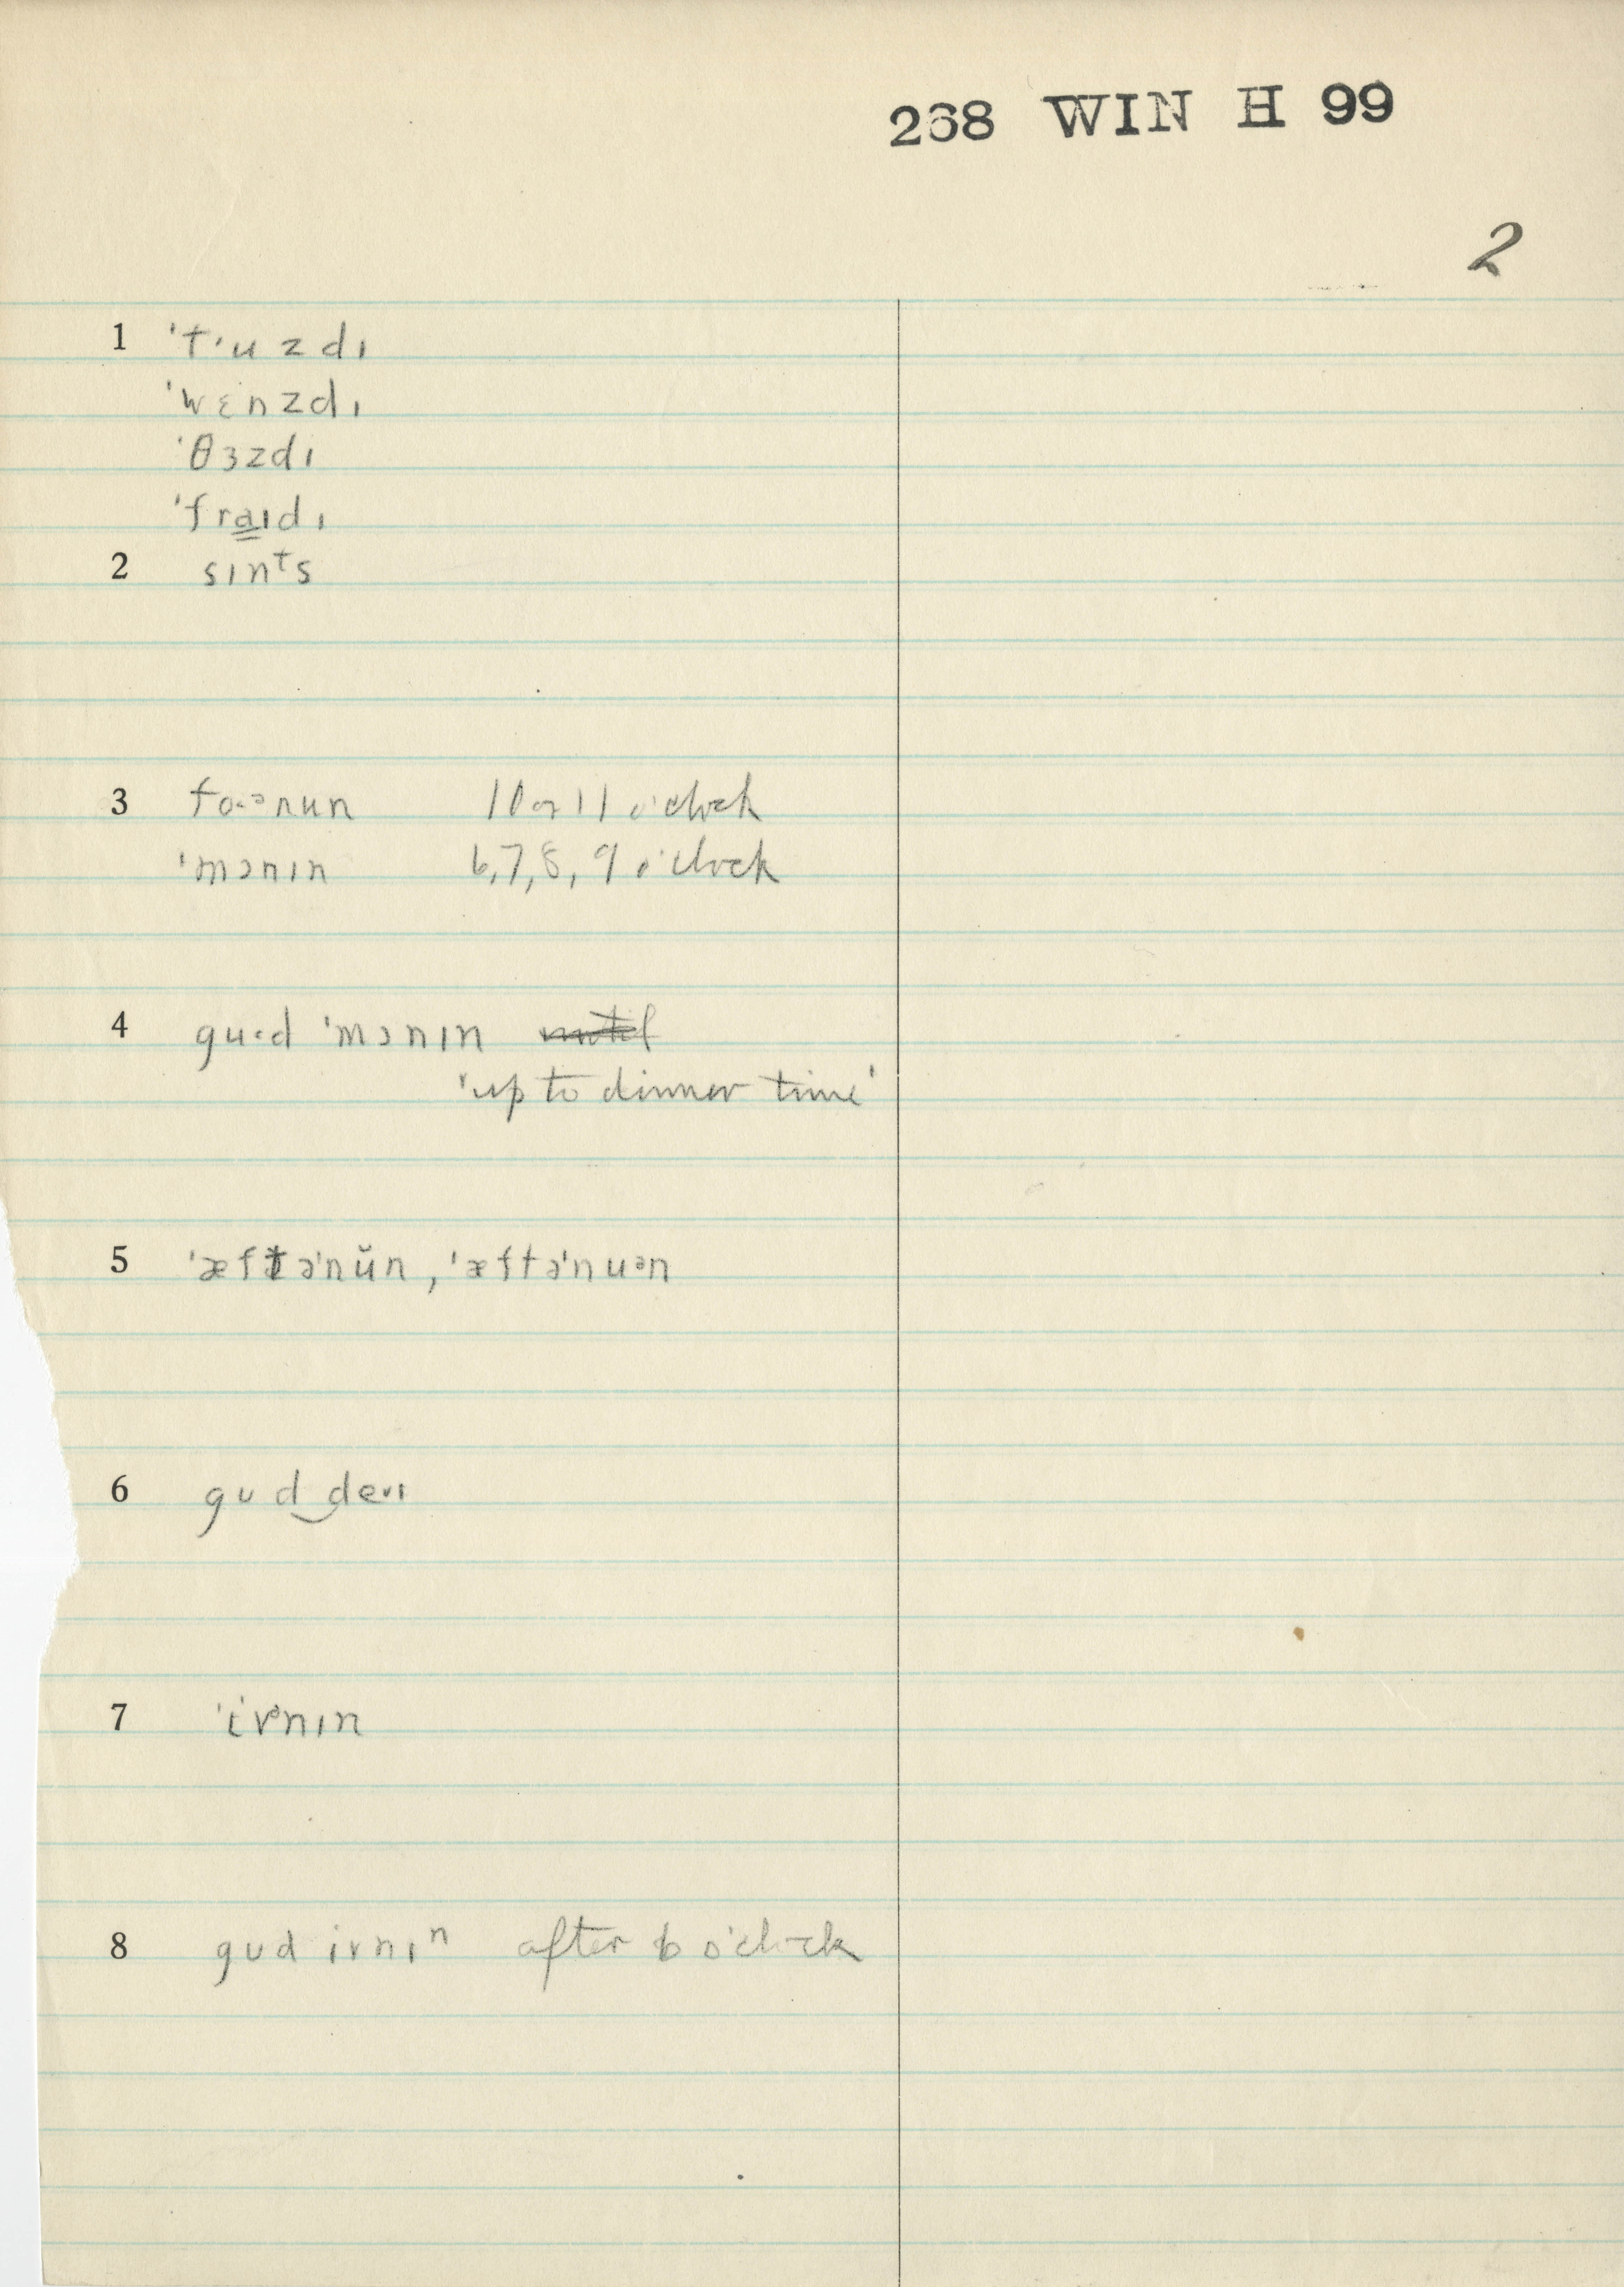 268 WIN H 99
2
1 ˈtʻuzdɪ
ˈwɛnzdɪ
ˈθɜzdɪ
ˈfraɪdɪ
2 sɪnᵗs
3 fo·ᵊnun 10 or 11 o'clock
ˈmɔnɪn 6,7,8, 9 o'clock
4 gu·d ˈmɔnɪn
'up to dinner time'
5 ˈæftəˈnŭn, ˈæftəˈnuᵊn
6 gʊd‿deˑɪ
7 ˈivᵊnɪn
8 gʊd ivnɪⁿ after 6 o'clock